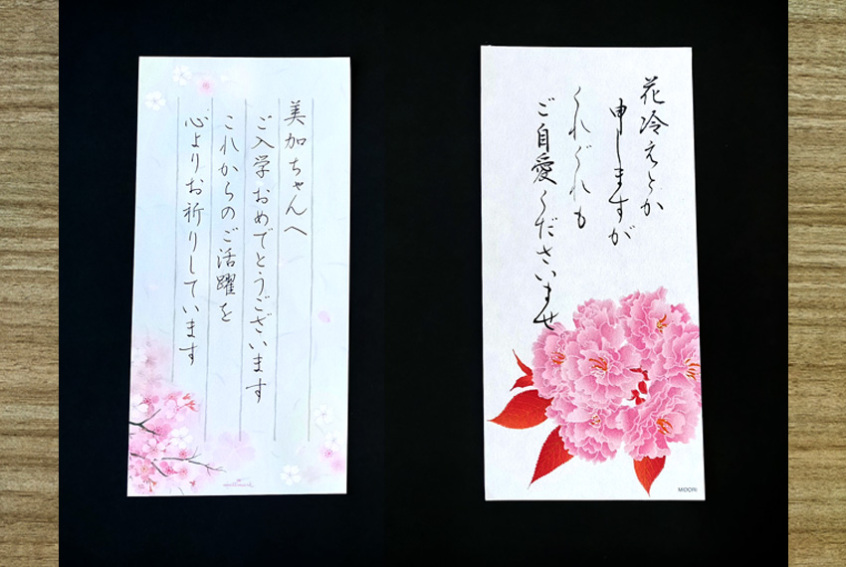 美加ちゃんへ
ご入学おめでとうございます
これからのご活躍を
心よりお祈りしています
花冷えとか
申しますが
くれぐれも
ご自愛くださいませ
MIDORI